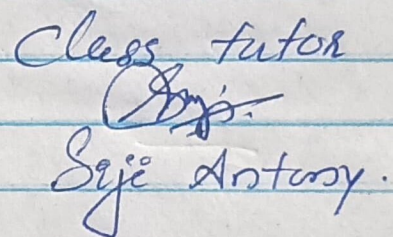 Class tutor
Seji Antony.